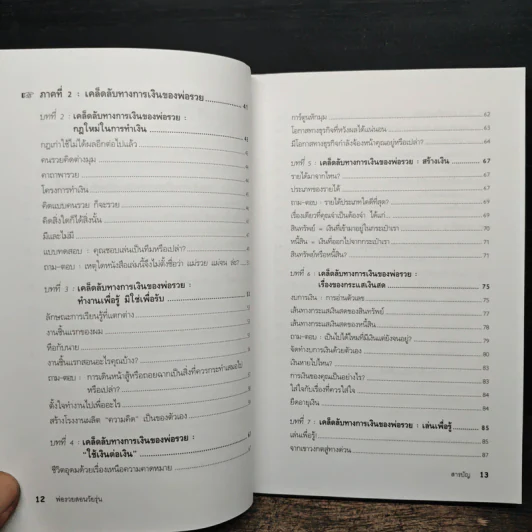 ภาคที่ 2 : เคล็ดลับทางการเงินของพ่อรวย
บทที่ 2 : เคล็ดลับทางการเงินของพ่อรวย :
กฎใหม่ในการทำเงิน
กฎเก่าใช้ไม่ได้ผลอีกต่อไปแล้ว
คนรวยคิดต่างมุม
คาถาพารวย
โครงการทำเงิน
คิดแบบคนรวย ก็จะรวย
คิดสิ่งใดก็ได้สิ่งนั้น
มีและไม่มี
แบบทดสอบ : คุณชอบเล่นเป็นทีมหรือเปล่า?
ถาม-ตอบ : เหตุใดหนังสือเล่มนี้จึงไม่ตั้งชื่อว่า แม่รวย แม่จน ล่ะ?
บทที่ 3 : เคล็ดลับทางการเงินของพ่อรวย :
ทำงานเพื่อรู้ มิใช่เพื่อรับ
ลักษณะการเรียนรู้ที่แตกต่าง
งานชิ้นแรกของผม
หือกับนาย
งานชิ้นแรกสอนอะไรคุณบ้าง?
ถาม-ตอบ : การเดินหน้าสู้หรือถอยฉากเป็นสิ่งที่ควรกระทำเสมอไป
หรือเปล่า?
ตั้งใจทำงานไปเพื่ออะไร
สร้างโรงงานผลิต "ความคิด" เป็นของตัวเอง
บทที่ 4 : เคล็ดลับทางการเงินของพ่อรวย :
"ใช้เงินต่อเงิน"
ชีวิตอุดมด้วยเรื่องเหนือความคาดหมาย
12 พ่อรวยสอนวัยรุ่น
การ์ตูนสักมุม 62
โอกาสทางธุรกิจที่หวังผลได้แน่นอน 63
มีโอกาสทางธุรกิจกำลังจ้องหน้าคุณอยู่หรือเปล่า? 64
บทที่ 5 : เคล็ดลับทางการเงินของพ่อรวย : สร้างเงิน 67
รายได้มาจากไหน? 67
ประเภทของรายได้ 68
ถาม-ตอบ : รายได้ประเภทใดดีที่สุด? 69
เรื่องเดียวที่คุณจำเป็นต้องจำ ได้แก่ 69
สินทรัพย์ = เงินที่เข้ามาอยู่ในกระเป๋าเรา 70
หนี้สิน = เงินที่ออกไปจากกระเป๋าเรา 71
สินทรัพย์หรือหนี้สิน? 71
บทที่ 6 : เคล็ดลับทางการเงินของพ่อรวย :
เรื่องของกระแสเงินสด 75
งบการเงิน : การอ่านตัวเลข 76
เส้นทางกระแสเงินสดของสินทรัพย์
เส้นทางกระแสเงินสดของหนี้สิน
ถาม-ตอบ : เป็นไปได้ไหมที่มีเงินแต่ยังจนอยู่? 79
จัดทำงบการเงินด้วยตัวเอง 80
เงินหายไปไหน?
การเงินของคุณเป็นอย่างไร?
ใส่ใจกับเรื่องที่ควรใส่ใจ 84
ยืดอายุเงิน 84
บทที่ 7 : เคล็ดลับทางการเงินของพ่อรวย : เล่นเพื่อรู้ 85
เล่นเพื่อรู้! 85
จากเขาวงกตสู่ทางด่วน 87
สารบัญ 13